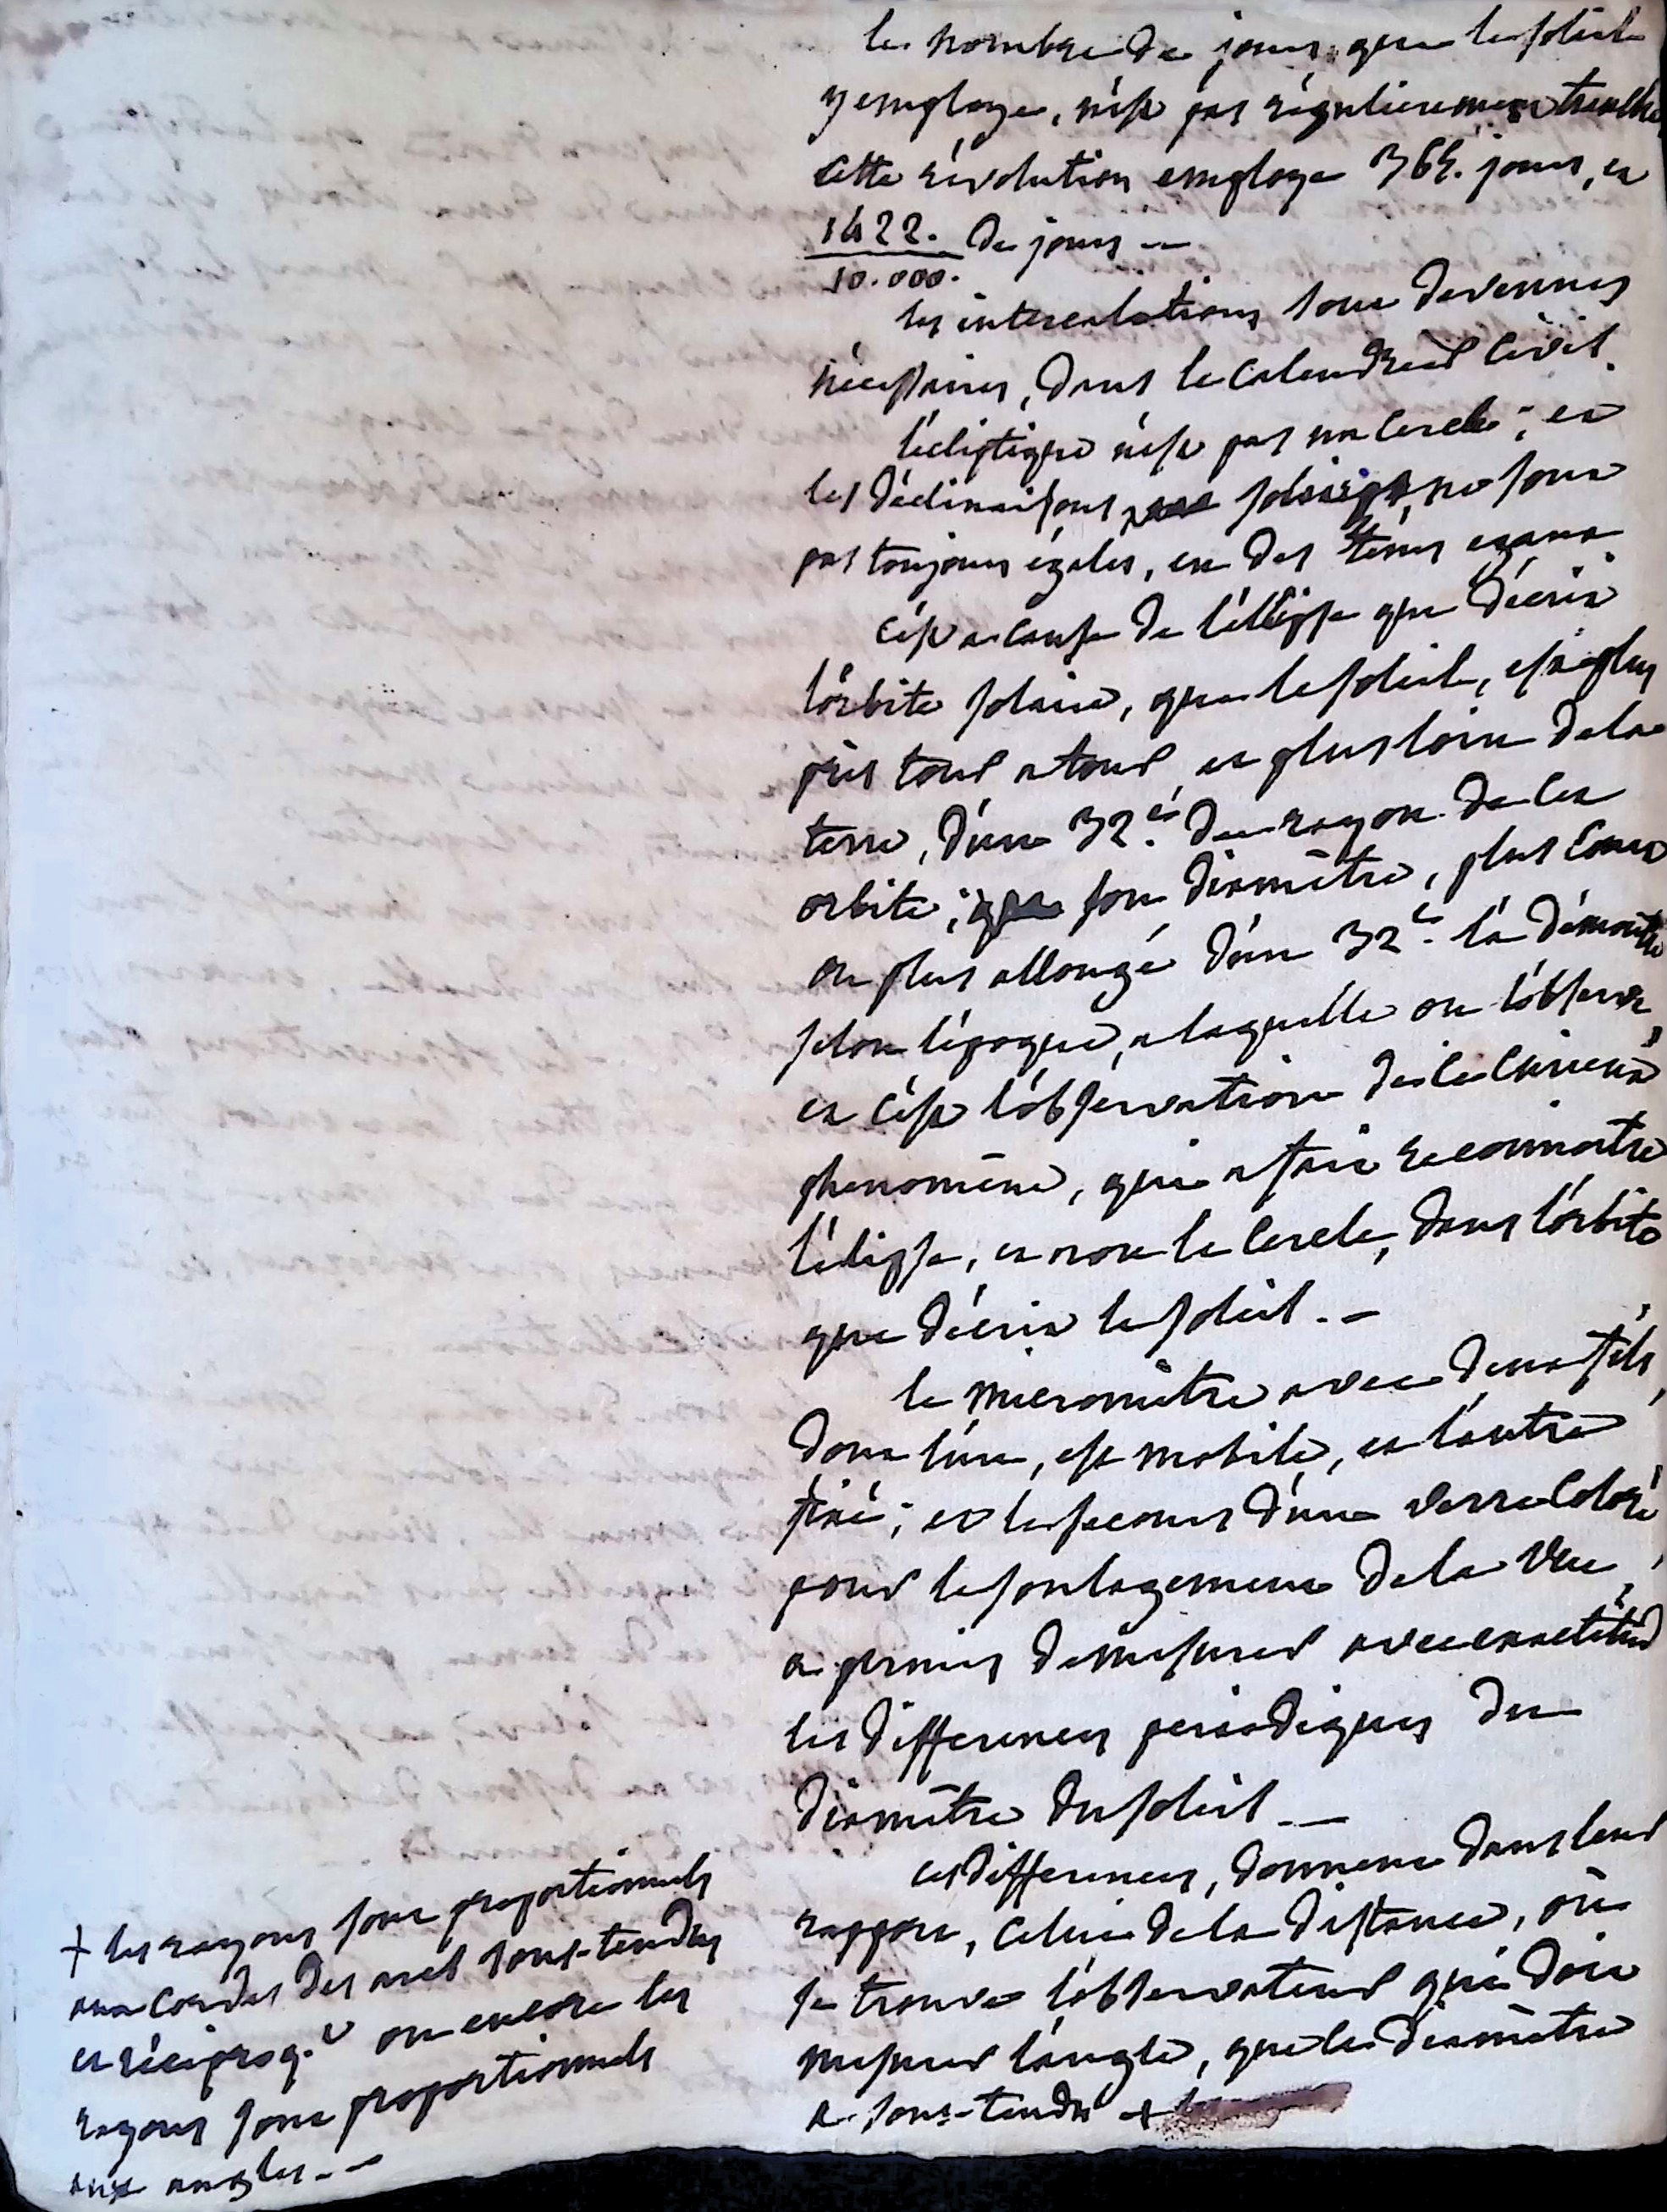 le nombre de jours, que le soleil
y employe, n'ést pas régulierement trente
cette révolution employe 365. jours, et
1422. de jours —
10.000.
les intercalations sont devenues
nécessaires, dans le calendrier civil.
l'écliptique n'ést pas un cercle; et
les déclinaisons solaires, ne sont
pas toujours égales, en des téms egaux.
c'ést a cause de l'éllipse que décrit
l'órbite solaire, que le soleil, est plus
près tour a tour et plus loin de la
terre, d'un 32.e du rayon de cet
orbite; son diamêtre, plus court
ou plus allongé d'un 32.e l'a démontré
selon l'époque, a laquelle on l'óbserve,
et c'ést l'óbservation de ce curieux
phenomêne, qui a fait reconnoitre
l'élipse, et non le cercle, dans l'órbite
que décrit le soleil. —
le micromêtre avec deux fils,
dont l'un, est mobile, et l'autre
fixé; et le secours d'un verre coloré
pour le soulagement de la vue,
a permis de mesurer avec exactitude
les differences periodiques du
diamêtre du soleil —
ces differences, donnent dans leur
rapport, celui de la distance, où
se trouve l'óbservateur qui doit
mesurer l'angle, que le diamètre
a sous-tendu +
+ les rayons sont proportionnels
aux cordes des arcs sous-tendus
et réciproq.t ou encore les
rayons sont proportionnels
aux angles --